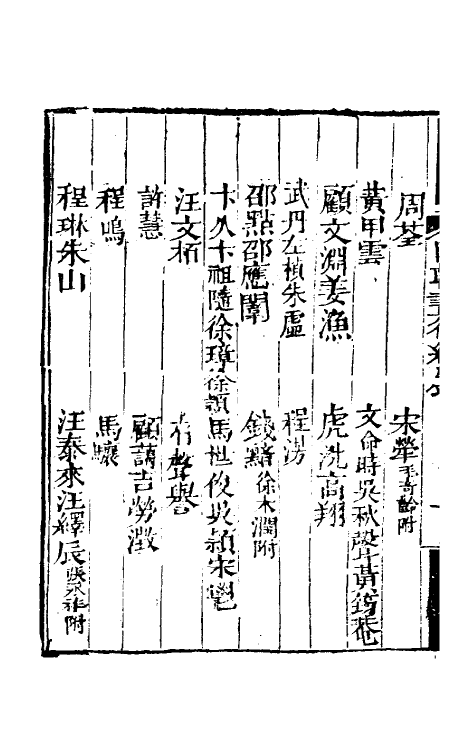 周荃 宋犖毛奇齡附
黃甲雲 文命時吳秋聲黃筠菴
顧文淵姜漁 虎洗高翔
武丹左楨朱虛 程澇
邵點邵應闈 錢黯徐木潤附
卞久卞祖隨徐璋徐穎馬世俊吳潁宋鬯
汪文栢 有聲譽
許慧 顧藹吉勞澂
程鳴 馬驤
程琳朱山 汪泰來汪繹辰張永祚附